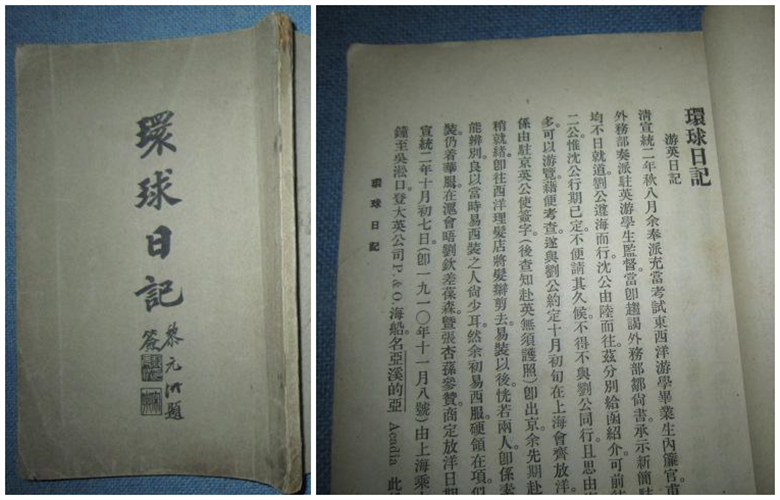 環球日記
黎元洪題
簽
環球日記
游英日記
清宣統二年秋八月余奉派充當考試東西洋游學畢業生內簾官甫
外務部奏派駐英游學生監督當卽趨謁外務部鄒尙書承示新簡駐
均不日就道劉公遵海而行沈公由陸而往茲分別給函紹介可前
二公惟沈公行期已定不便請其久候不得不與劉公同行且思由
多可以游覽藉便考查遂與劉公約定十月初旬在上海會齊放洋
係由駐京英公使簽字（後查知赴英無須護照）卽出京余先期赴
稍就緖卽往西洋理髮店將髮辮剪去易裝以後恍若兩人卽係素
能辨別良以當時易西裝之人尙少耳然余初易西服硬領在項
裝仍着華服在滬會晤劉欽差葆森暨張杏蓀參贊商定放洋日期
宣統二年十月初七日（卽一九一〇年十一月八號）由上海乘
鐘至吳淞口登大英公司P. & O.海船名亞溪的亞 Acadia 此
環球日記